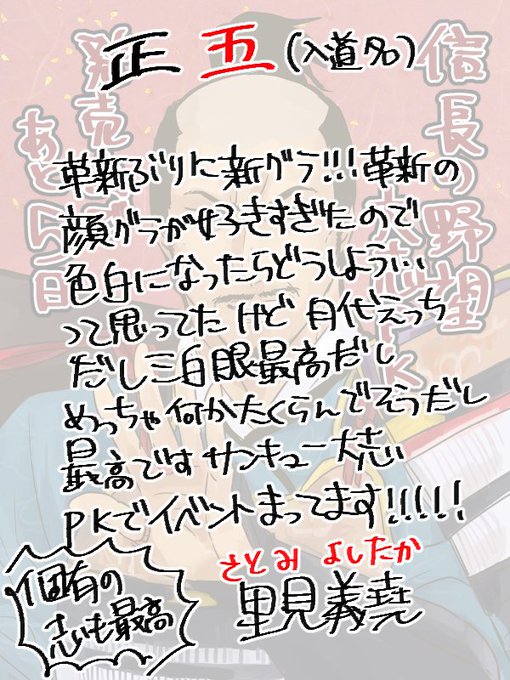 正五(入道名)
信長の野望
大志PK
発売まで
あと5日
革新ぶりに新グラ!!!革新の
顔グラが好きすぎたので
色白になったらどうしよう…
って思ってたけど月代えっち
だし三白眼最高だし
めっちゃ何かたくらんでそうだし
最高ですサンキュー大志
PKでイベントまってます!!!!!
さとみ よしたか
里見義堯
固有の
志も最高